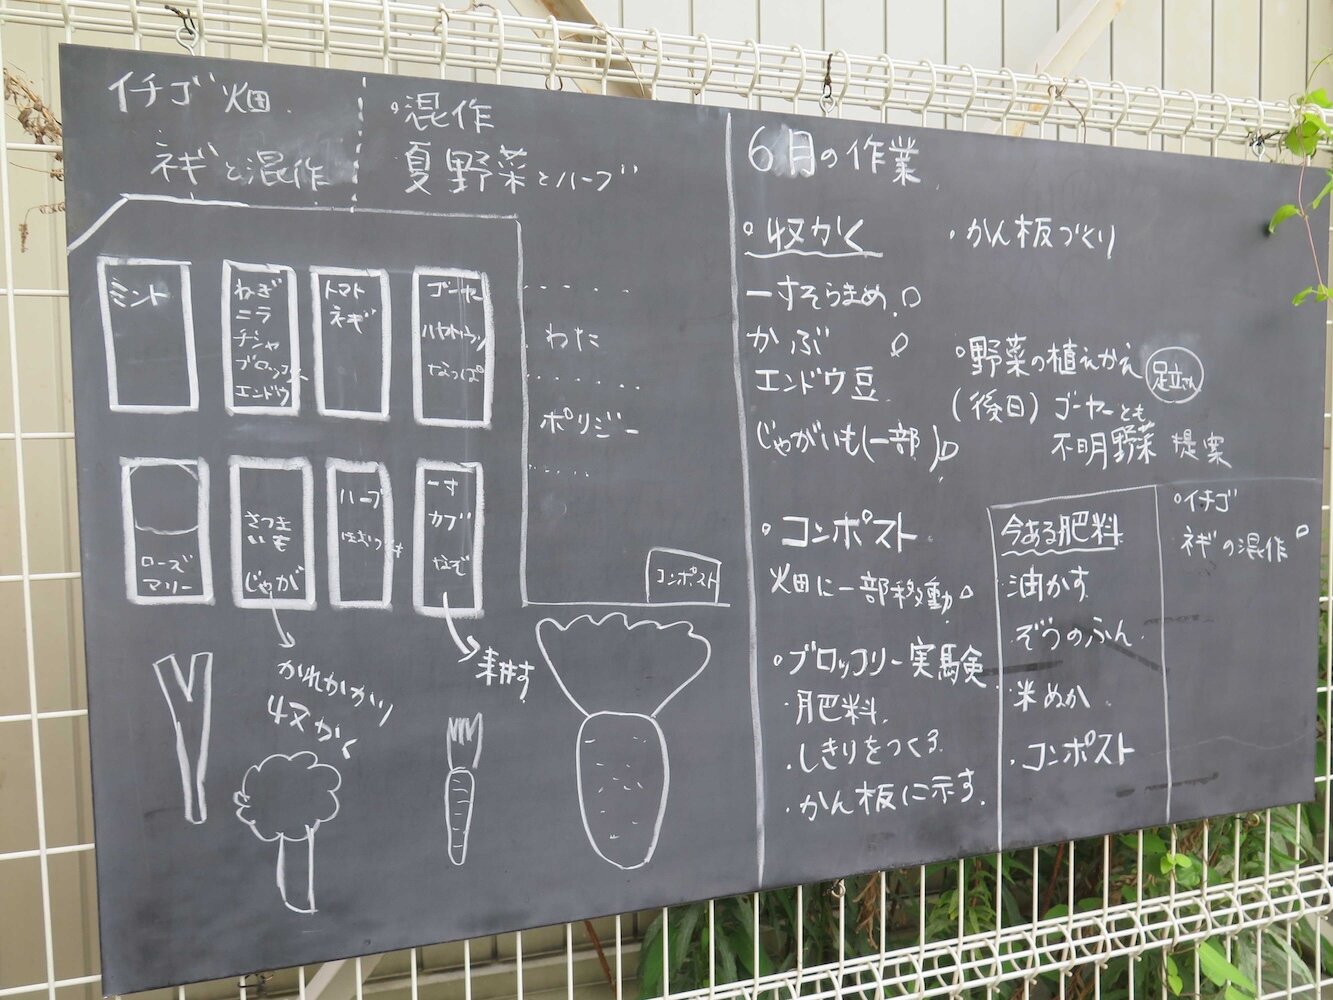 イチゴ畑
ネギと混作
・混作
夏野菜とハーブ
ミント
ねぎ
ニラ
チシャ
ブロッコリー
エンドウ
トマト
ネギ
ゴーヤー
ハヤトウリ
なっぱ
ローズ
マリー
さつま
いも
じゃが
ハーブ
一寸
カブ
なぞ
わた
ポリジー
コンポスト
かれかかり
収かく
耕す
6月の作業
・収かく
一寸そらまめ
かぶ
エンドウ豆
じゃがいも(一部)
・コンポスト
畑に一部移動
・ブロッコリー実験
・肥料
・しきりをつくる
・かん板に示す。
・かん板づくり
・野菜の植えかえ 足立さん
(後日) ゴーヤーとも
不明野菜 提案
今ある肥料
・油かす
・ぞうのふん
・米ぬか
・コンポスト
・イチゴ
ネギの混作